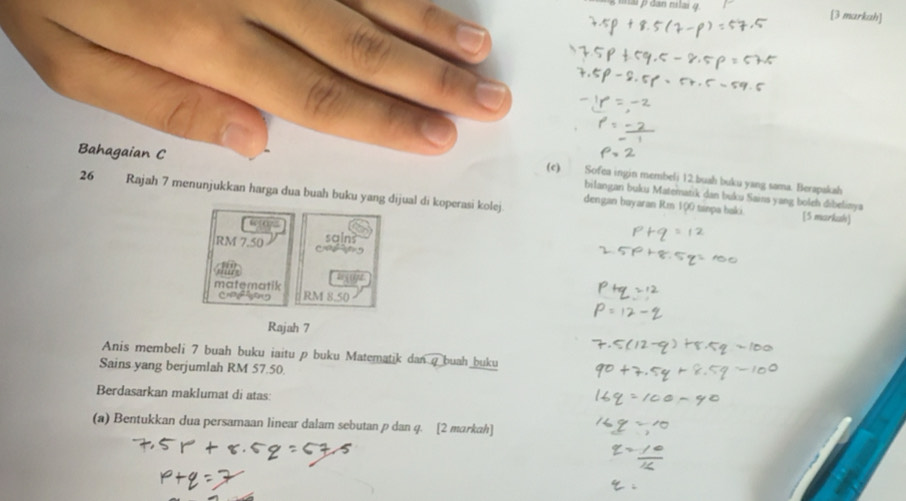 Bahagaian C
26 Rajah 7 menunjukkan harga dua buah buku yang dijual di koperasi kolej.
RM 7.50
matematik
sains
RM 8.50
Rajah 7
Anis membeli 7 buah buku iaitu p buku Matematik dan q buah buku
Sains yang berjumlah RM 57.50.
Berdasarkan maklumat di atas:
(a) Bentukkan dua persamaan linear dalam sebutan p dan q. [2 markah]
7.5p + 8.5q = 57.5
p+q = 7
p dan nilai q. [3 markah]
7.5p + 8.5(7-p) = 57.5
7.5p + 59.5 - 8.5p = 57.5
7.5p - 8.5p = 57.5 - 59.5
-1p = -2
p = -2
-1
p = 2
(c) Sofea ingin membeli 12 buah buku yang sama. Berapakah
bilangan buku Matematik dan buku Sains yang boleh dibelinya
dengan bayaran Rm 100 tanpa baki. [5 markah]
p+q = 12
2.5p+8.5q = 100
p+q = 12
p = 12-q
7.5(12-q)+8.5q = 100
90+7.5q+8.5q = 100
16q = 100-90
16q = 10
q = 10
16
q =